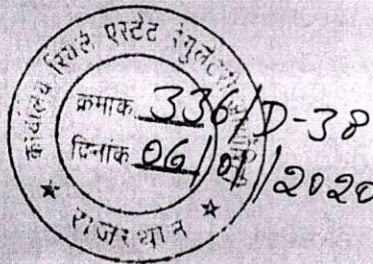 कार्यालय रियल एस्टेट रेगुलेटरी
क्रमांक 336/D-38
दिनांक 06/01/2020
★ राजस्थान ★